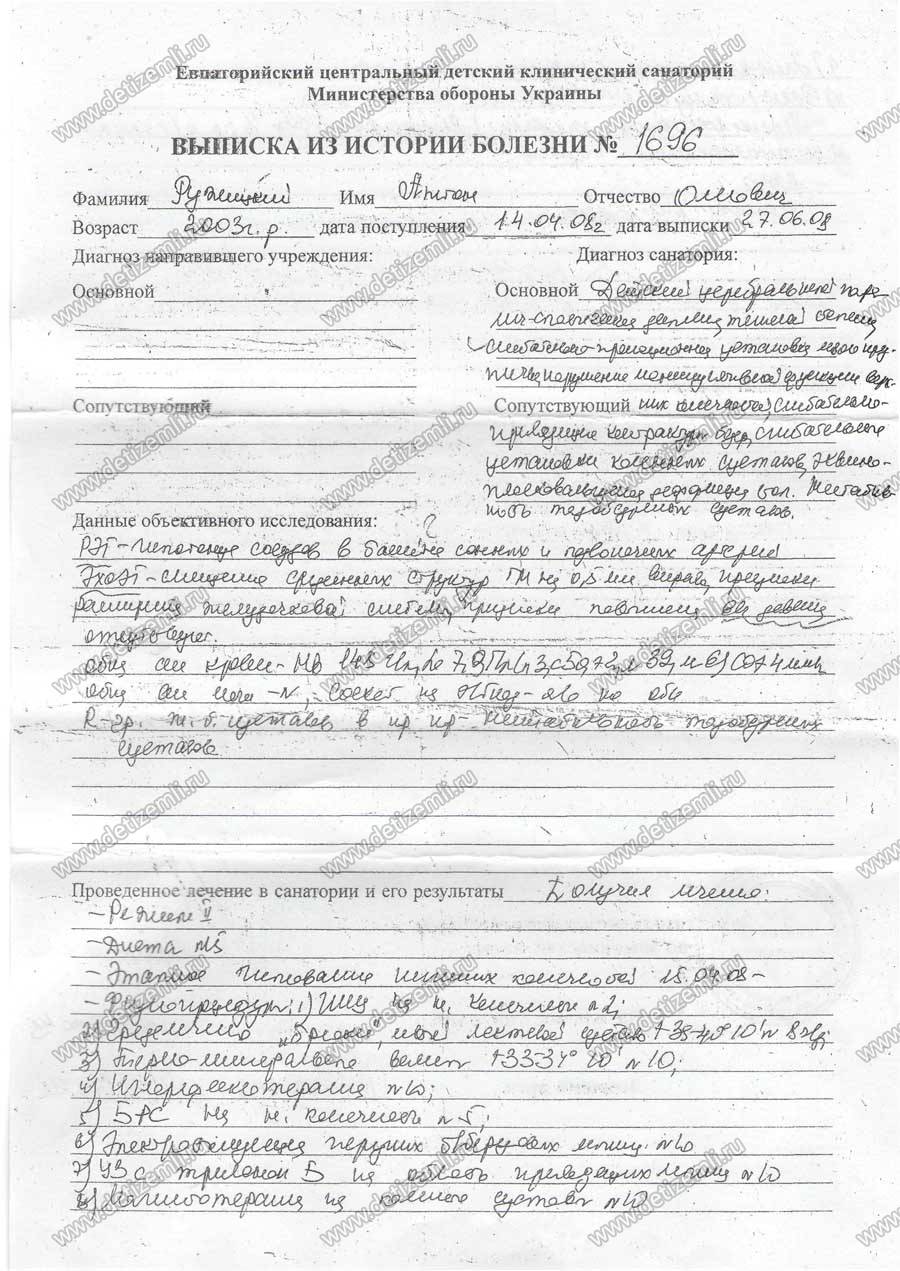 Евпаторийский центральный детский клинический санаторий
Министерства обороны Украины
ВЫПИСКА ИЗ ИСТОРИИ БОЛЕЗНИ № 1696
Фамилия Ружицкий Имя Антон Отчество
Возраст 2003 г.р. дата поступления 14.04.08г дата выписки 27.06.08
Диагноз направившего учреждения: Диагноз санатория:
Основной Основной Детский церебральный пара-
лич-спастическая диплегия тяжелой степени
сгибательно-пронационная установка левого пред-
плечья, нарушение манипулятивной функции верх-
Сопутствующий Сопутствующий них конечностей, сгибательно-
приводящие контрактуры бедер, сгибательные
установки коленных суставов, эквино-
плосковальгусная деформация стоп. Нестабиль-
ность тазобедренных суставов.
Данные объективного исследования:
РЭГ-гипотонус сосудов в бассейне сонных и позвоночных артерий
ЭхоЭГ-смещение срединных структур ГМ на 0,5 мм вправо, признаки
расширения желудочковой системы, признаки повышения давления
отсутствуют.
общ ан крови - Нв 145 32
общ ан мочи - N, соскоб на
R-гр. т.б. суставов в пр пр - нестабильность тазобедренных
суставов
Проведенное лечение в санатории и его результаты Получил лечение:
- Режим II
- Диета №5
- Этапное гипсование нижних конечностей 15.04.08-
- Физиопроцедуры: 1) на н. конечности
2) Грязелечение левый локтевой сустав 10' №8
3) Термо-минеральные ванны 10' №10;
4) Интерференцтерапия №10;
5) БРС на н. конечности №5;
6) Электростимуляция мышц №10
7) УЗ с трилоном Б на область приводящих мышц №10
8) Магнитотерапия на коленные суставы №10
www.detizemli.ru